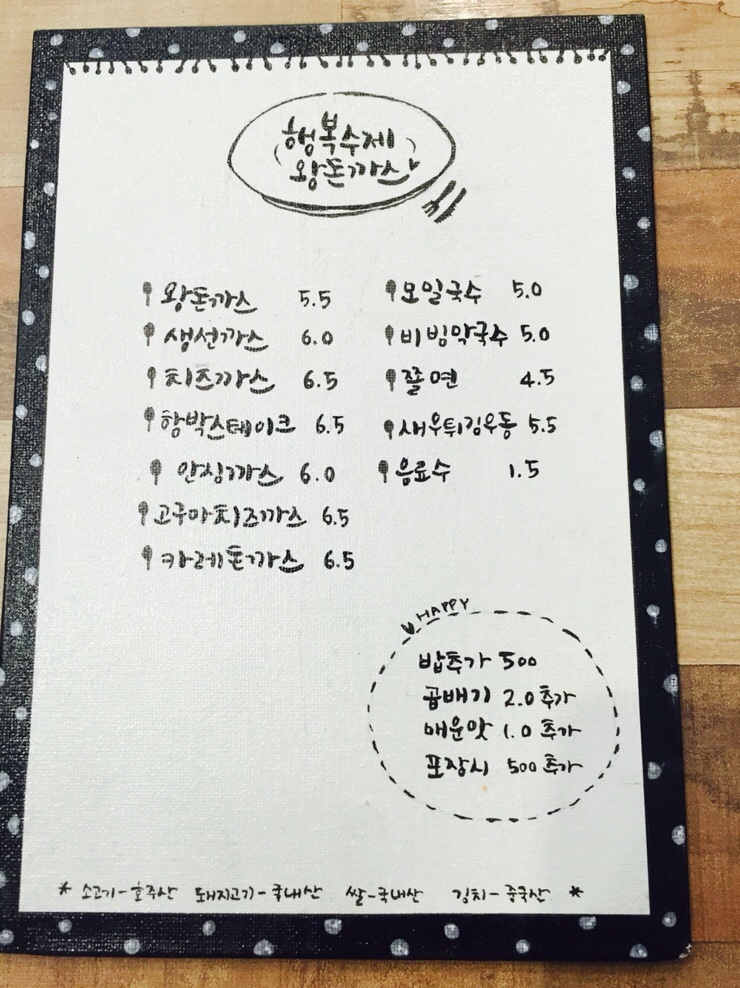 행복수제
왕돈까스
왕돈까스 5.5
생선까스 6.0
치즈까스 6.5
함박스테이크 6.5
안심까스 6.0
고구마치즈까스 6.5
카레돈까스 6.5
모밀국수 5.0
비빔막국수 5.0
쫄면 4.5
새우튀김우동 5.5
음료수 1.5
HAPPY
밥추가 500
곱배기 2.0 추가
매운맛 1.0 추가
포장시 500 추가
* 소고기-호주산 돼지고기-국내산 쌀-국내산 김치-중국산 *